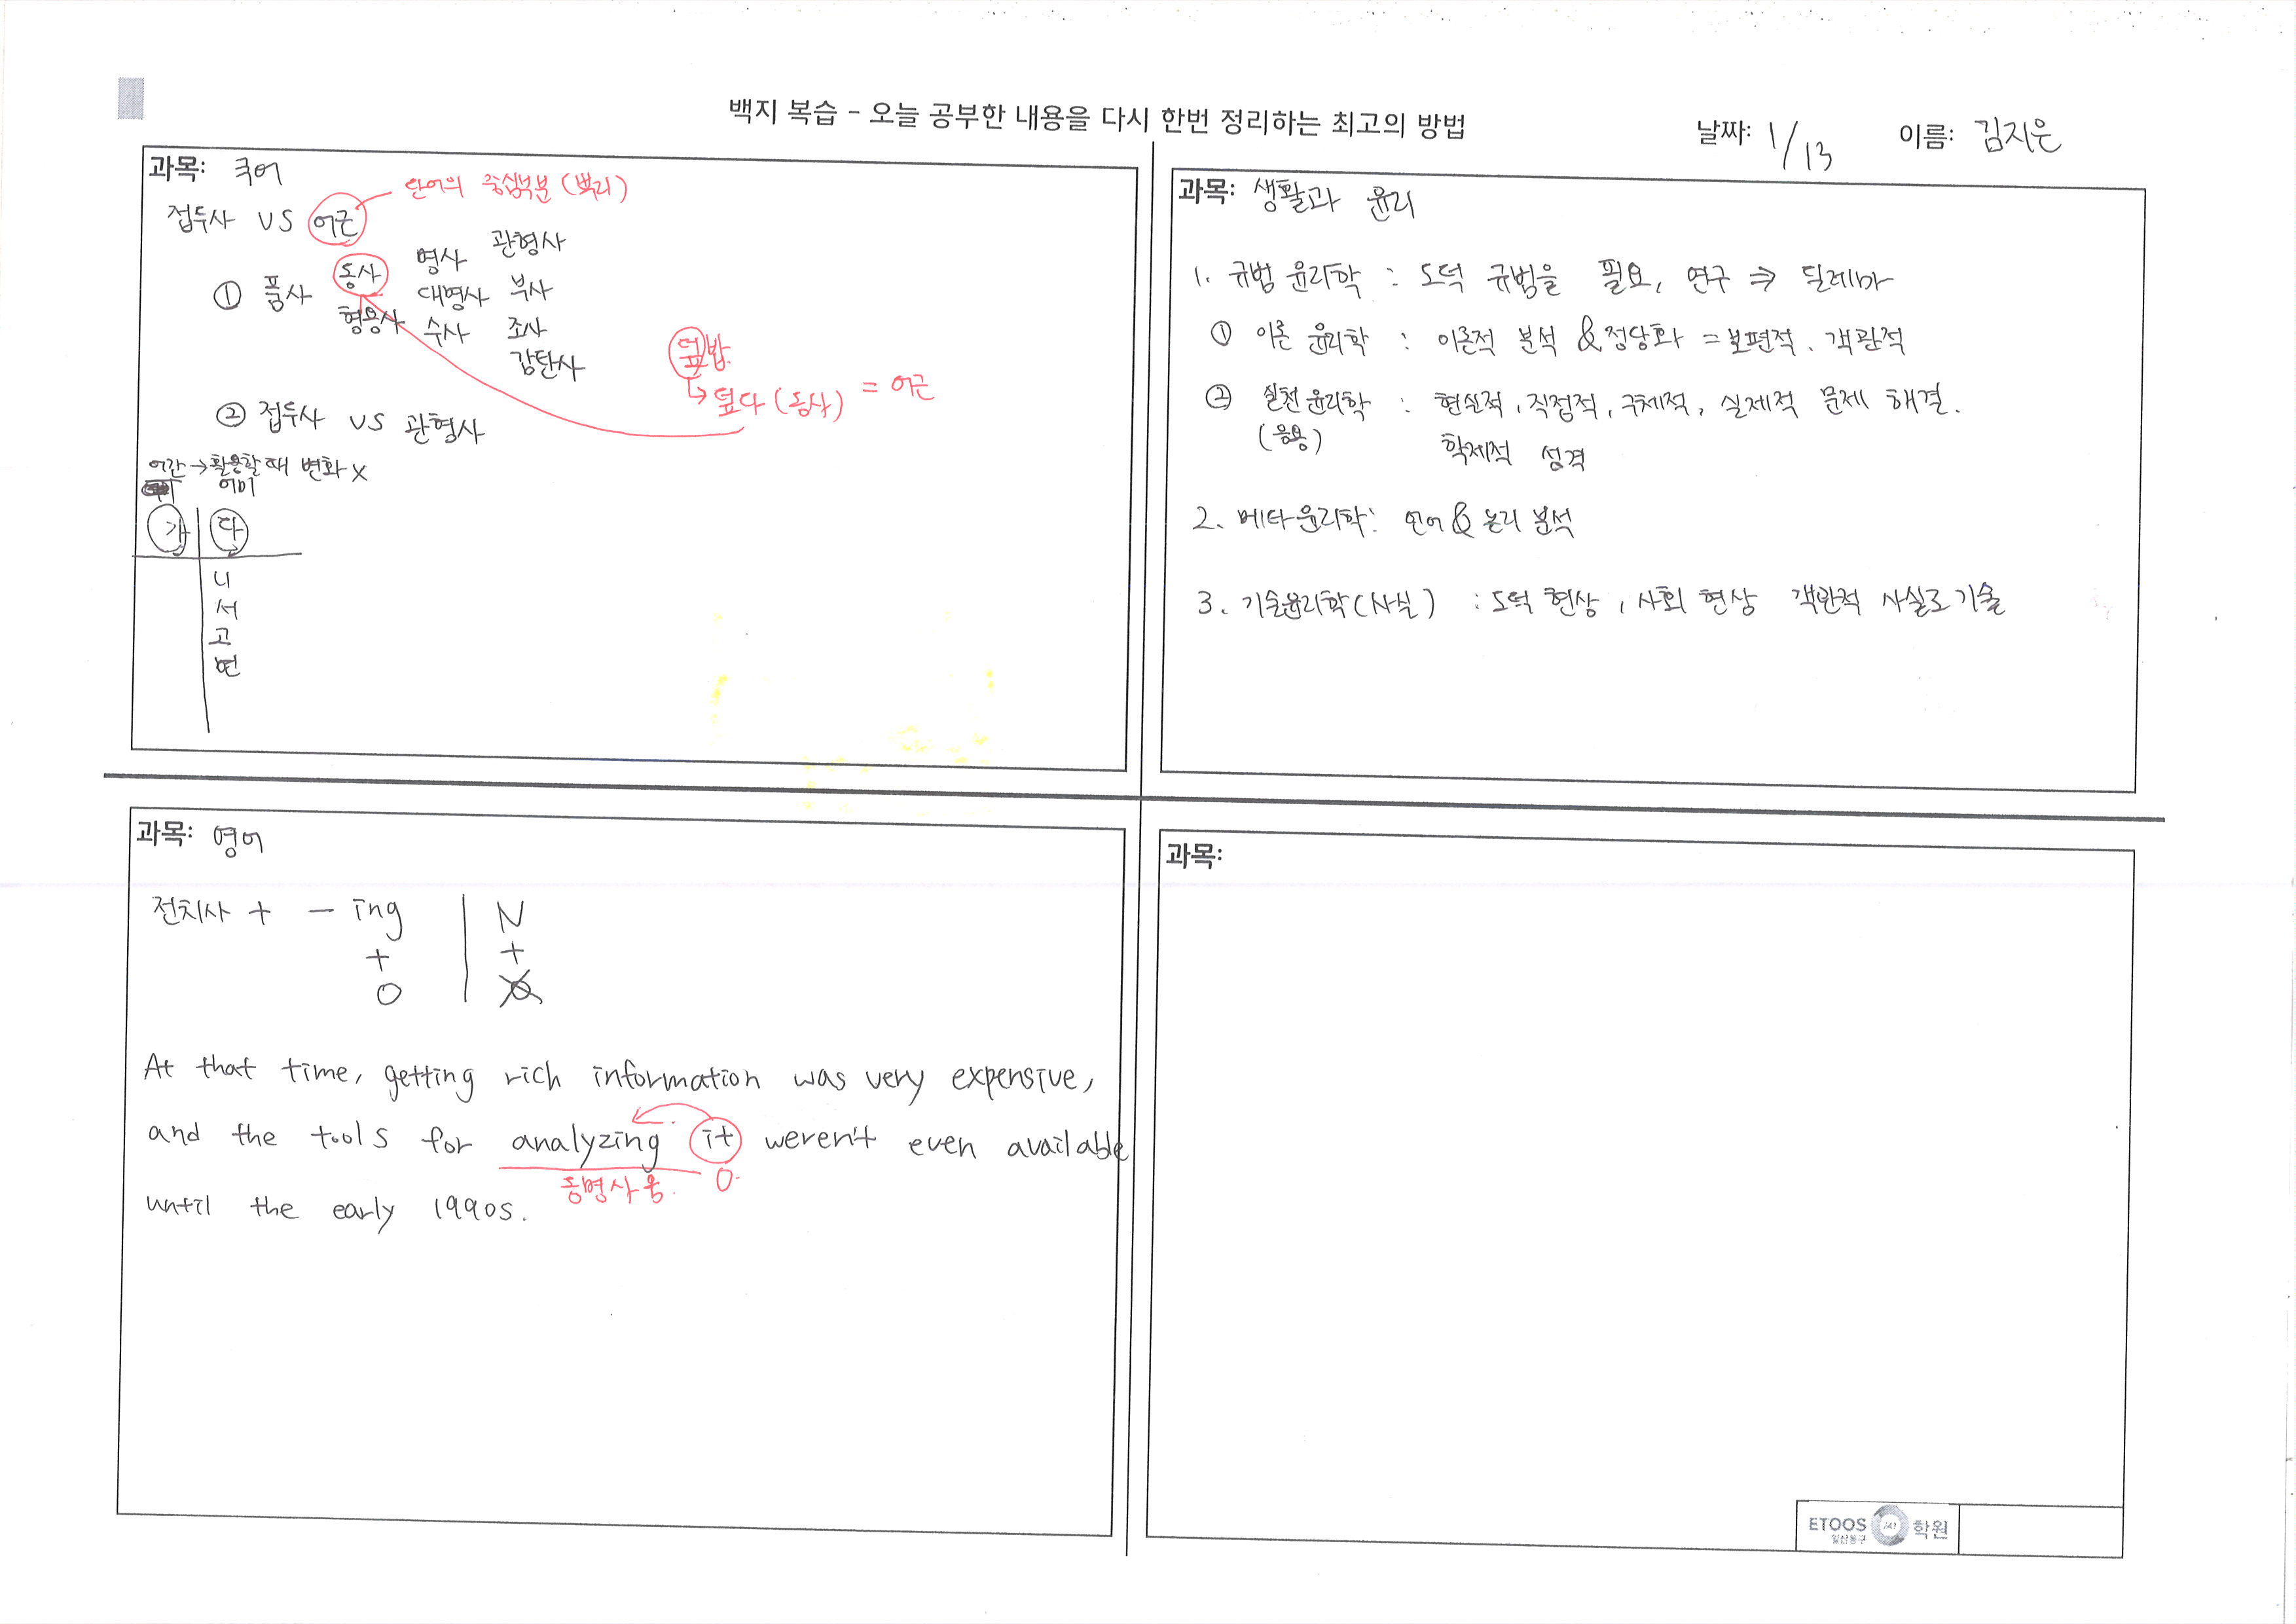 백지 복습 - 오늘 공부한 내용을 다시 한번 정리하는 최고의 방법
날짜: 1/13 이름: 김지은
과목: 국어
단어의 중심부분 (뿌리)
접두사 VS 어근
① 품사 동사 명사 관형사
대명사 부사
형용사 수사 조사
감탄사
덮밥
↳ 덮다 (동사) = 어근
② 접두사 VS 관형사
어간 → 활용할 때 변화 X
어미
가 다
니
서
고
면
과목: 생활과 윤리
1. 규범 윤리학 : 도덕 규범을 필요, 연구 ⇒ 딜레마
① 이론 윤리학 : 이론적 분석 & 정당화 = 보편적. 객관적
② 실천 윤리학 : 현실적, 직접적, 구체적, 실제적 문제 해결.
(응용) 학제적 성격
2. 메타윤리학: 언어 & 논리 분석
3. 기술윤리학(사실) : 도덕 현상, 사회 현상 객관적 사실로 기술
과목: 영어
전치사 + - ing | N
+ +
O O
At that time, getting rich information was very expensive,
and the tools for analyzing it weren't even available
동명사 O.
until the early 1990s.
과목:
ETOOS 247 학원